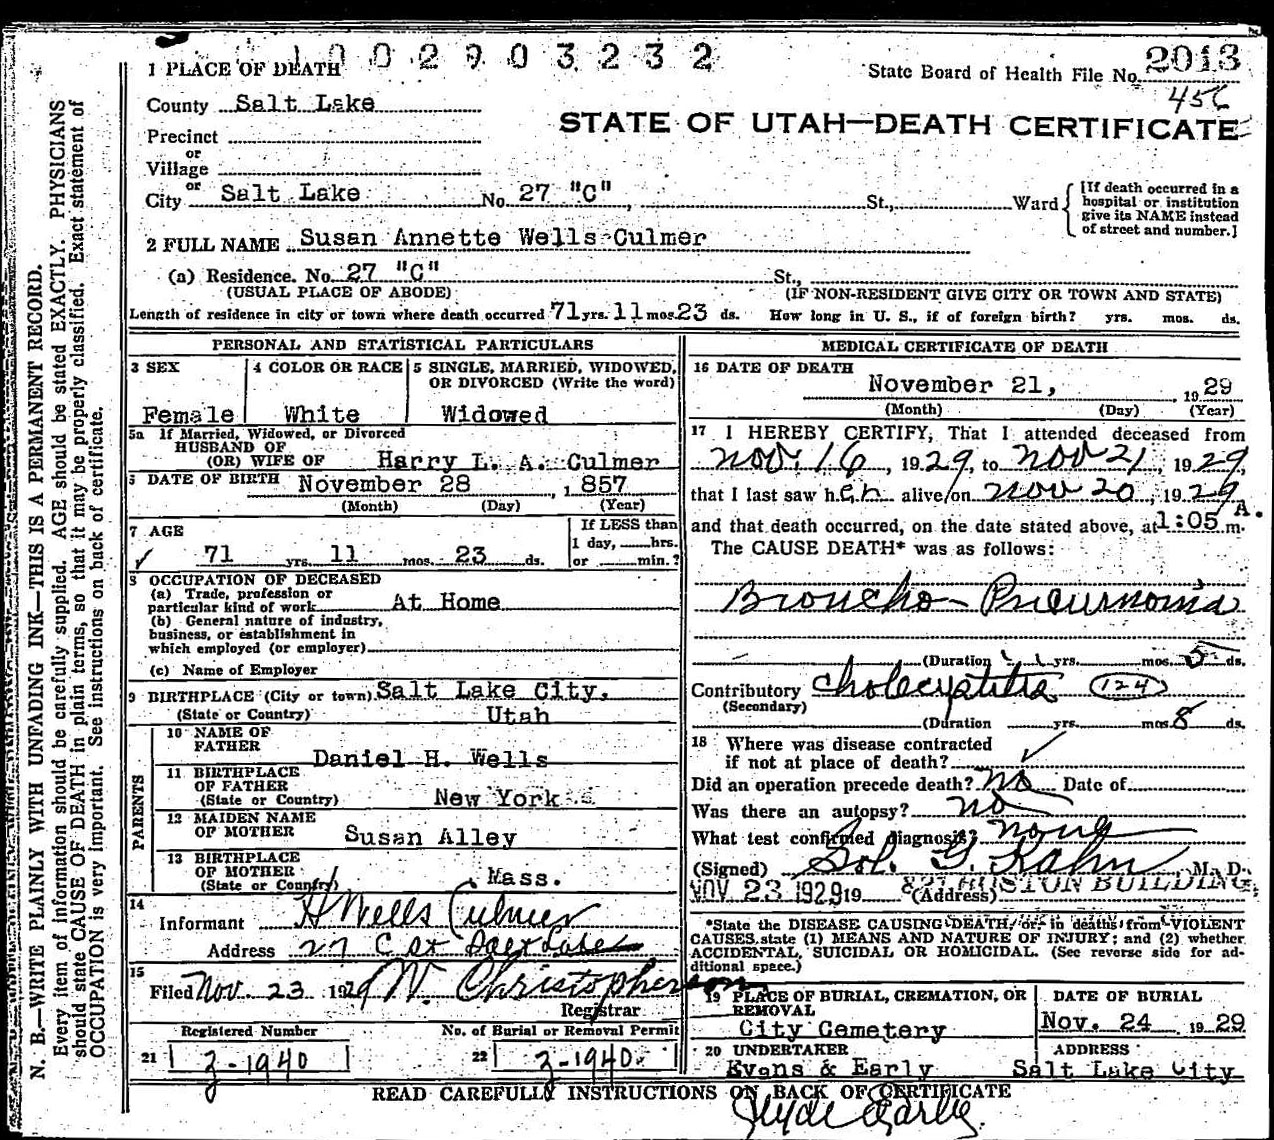 1002903232
1 PLACE OF DEATH
State Board of Health File No. 2013
456
County Salt Lake
STATE OF UTAH—DEATH CERTIFICATE
Precinct
or
Village
or
City Salt Lake No. 27 "C" St., Ward
[If death occurred in a
hospital or institution
give its NAME instead
of street and number.]
2 FULL NAME Susan Annette Wells Culmer
(a) Residence. No. 27 "C" St.,
(USUAL PLACE OF ABODE) (IF NON-RESIDENT GIVE CITY OR TOWN AND STATE)
Length of residence in city or town where death occurred 71 yrs. 11 mos. 23 ds. How long in U. S., if of foreign birth? yrs. mos. ds.
PERSONAL AND STATISTICAL PARTICULARS
3 SEX 4 COLOR OR RACE 5 SINGLE, MARRIED, WIDOWED,
OR DIVORCED (Write the word)
Female White Widowed
5a If Married, Widowed, or Divorced
HUSBAND OF
(OR) WIFE OF Harry L. A. Culmer
6 DATE OF BIRTH November 28, 1857
(Month) (Day) (Year)
7 AGE If LESS than
1 day, hrs.
71 yrs. 11 mos. 23 ds. or min.?
8 OCCUPATION OF DECEASED
(a) Trade, profession or
particular kind of work At Home
(b) General nature of industry,
business, or establishment in
which employed (or employer)
(c) Name of Employer
9 BIRTHPLACE (City or town) Salt Lake City,
(State or Country) Utah
PARENTS
10 NAME OF
FATHER Daniel H. Wells
11 BIRTHPLACE
OF FATHER
(State or Country) New York
12 MAIDEN NAME
OF MOTHER Susan Alley
13 BIRTHPLACE
OF MOTHER
(State or Country) Mass.
14
Informant H Wells Culmer
Address 27 C St Salt Lake
15
Filed Nov. 23 1929 W. Christopherson
Registrar
Registered Number No. of Burial or Removal Permit
21 3-1940 22 3-1940
MEDICAL CERTIFICATE OF DEATH
16 DATE OF DEATH
November 21, 1929
(Month) (Day) (Year)
17 I HEREBY CERTIFY, That I attended deceased from
Nov. 16, 1929, to Nov 21, 1929,
that I last saw her alive on Nov 20, 1929
and that death occurred, on the date stated above, at 1:05 A. m.
The CAUSE DEATH* was as follows:
Broncho-Pneumonia
(Duration yrs. mos. 5 ds.
Contributory Cholecystitis 124
(Secondary)
(Duration yrs. mos. 8 ds.
18 Where was disease contracted
if not at place of death?
Did an operation precede death? No Date of
Was there an autopsy? no
What test confirmed diagnosis? none
(Signed) Sol. G. Kahn, M. D.
NOV 23 1929 19 (Address) BUILDING
*State the DISEASE CAUSING DEATH, or in deaths from VIOLENT
CAUSES state (1) MEANS AND NATURE OF INJURY; and (2) whether
ACCIDENTAL, SUICIDAL OR HOMICIDAL. (See reverse side for ad-
ditional space.)
19 PLACE OF BURIAL, CREMATION, OR
REMOVAL
City Cemetery
DATE OF BURIAL
Nov. 24 1929
20 UNDERTAKER
Evans & Early
ADDRESS
Salt Lake City
READ CAREFULLY INSTRUCTIONS ON BACK OF CERTIFICATE
Clyde Early
N. B.—WRITE PLAINLY WITH UNFADING INK—THIS IS A PERMANENT RECORD.
Every item of information should be carefully supplied. AGE should be stated EXACTLY. PHYSICIANS
should state CAUSE OF DEATH in plain terms, so that it may be properly classified. Exact statement of
OCCUPATION is very important. See instructions on back of certificate.